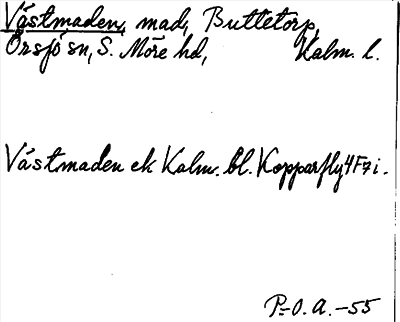 Västmaden, mad, Buttetorp,
Örsjö sn, S. Möre hd, Kalm. l.
Västmaden ek Kalm. bl. Kopparfly 4F7i.
P-O. A. -55